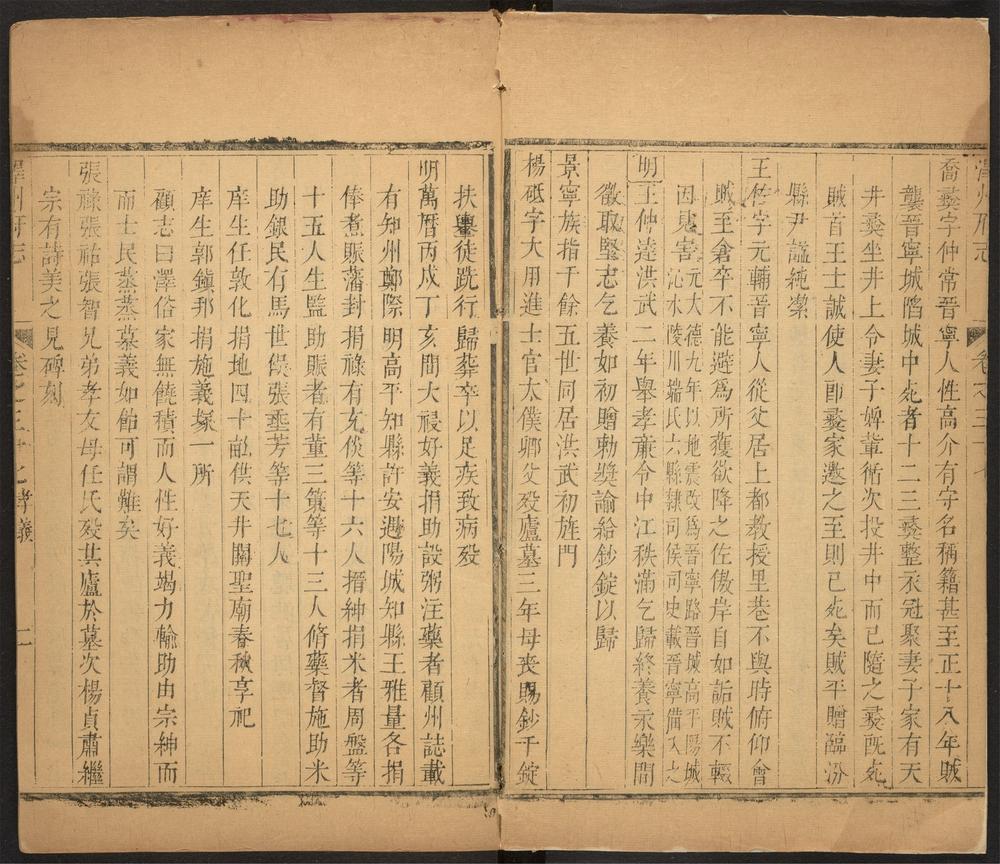 澤州府志
卷之三十七
喬彝字仲常晉寧人性高介有守名稱籍甚至正十八年賊
襲晉寧城陷城中死者十二三彝整衣冠聚妻子家有天
井彝坐井上令妻子婢輩循次投井中而己隨之彝既死
賊首王士誠使人卽彝家邀之至則已死矣賊平贈臨汾
縣尹諡純潔
王佐字元輔晉寧人從父居上都教授里巷不與時俯仰會
賊至倉卒不能避為所獲欲降之佐傲岸自如詬賊不輟
因見害
元大德九年以地震改爲晉寧路晉城高平陽城
沁水陵川端氏六縣隸司侯司史載晉寧備入之
明王仲達洪武二年舉孝亷令中江秩滿乞歸終養永樂間
徵取堅志乞養如初贈勅獎諭給鈔錠以歸
景寧族指千餘五世同居洪武初旌門
楊砥字大用進士官太僕卿父歿廬墓三年母喪賜鈔千錠
扶轝徒跣行歸葬卒以足疾致病歿
明萬曆丙戌丁亥間大祲好義捐助設粥汪藥者顧州誌載
有知州鄭際明高平知縣許安遇陽城知縣王雅量各捐
俸煮賑藩封捐祿有充倓等十六人搢紳捐米者周盤等
十五人生監助賑者有董三策等十三人脩藥督施助米
助銀民有馬世俊張垂芳等十七人
庠生任敦化捐地四十畝供天井關聖廟春秋享祀
庠生郭鎭邦捐施義塚一所
顧志曰澤俗家無饒積而人性好義竭力輸助由宗紳而
而士民蒸蒸慕義如飴可謂難矣
張祿張祐張智兄弟孝友母任氏歿共廬於墓次楊貞肅繼
宗有詩美之見碑刻
澤州府志
卷之三十七孝義
十一